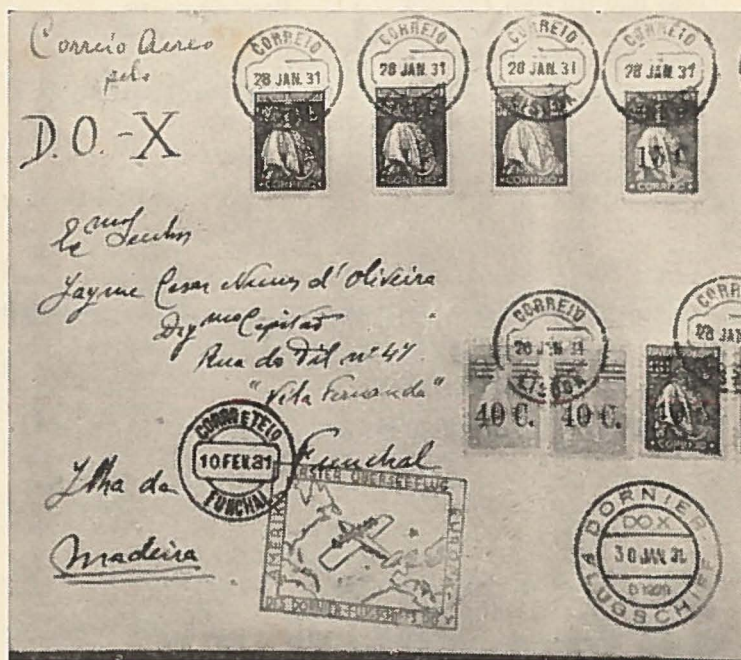 Correio Aereo
pelo
D.O.-X
CORREIO
28 JAN. 31
CORREIO
28 JAN. 31
CORREIO
28 JAN. 31
CORREIO
28 JAN. 31
CORREIO
CORREIO
CORREIO
15 C.
CORREIO
Exmo Senhor
Jayme Cesar Nunes d'Oliveira
Digmo Capitão
Rua do Til nº 47
"Vila Fernanda"
Funchal
Ilha da
Madeira
CORREIO
28 JAN 31
LISBOA
CORREIO
28 JAN
40 C.
40 C.
40 C.
CORREIO
CORREIO E TELO
10.FEV.31
FUNCHAL
ERSTER ÜBERSEEFLUG
EUROPA
AMERIKA
DES DORNIER-FLUGSCHIFFS DO X
DORNIER
DO X
30 JAN. 31
D 1929
FLUGSCHIFF